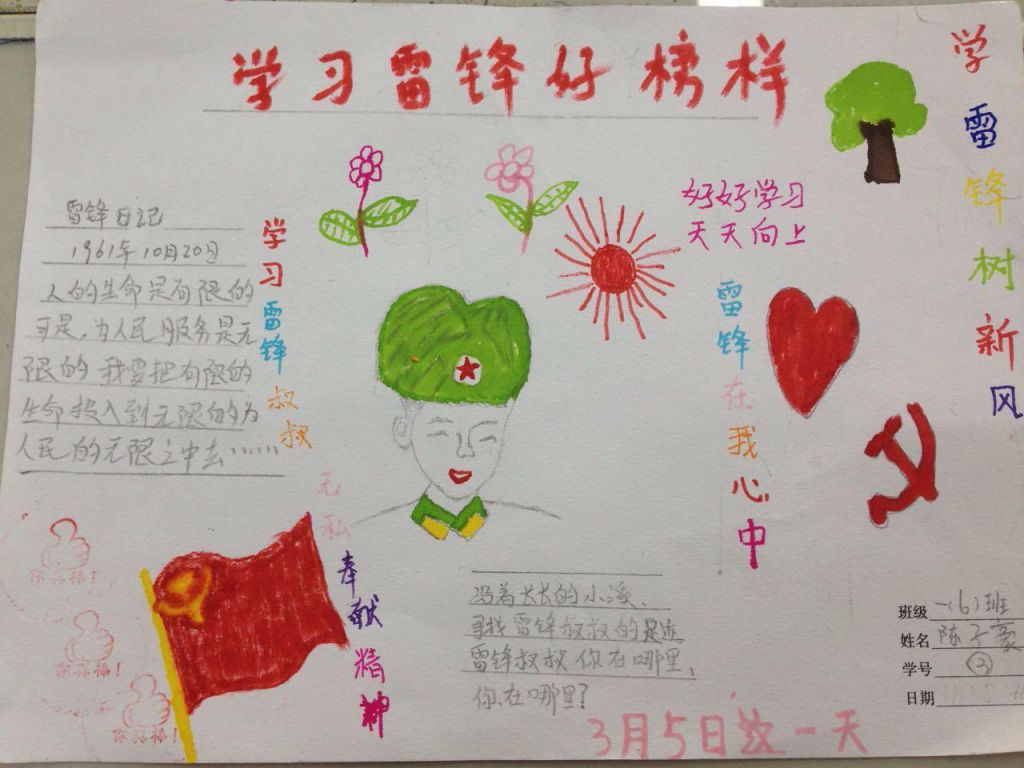 学习雷锋好榜样
学雷锋树新风
好好学习
天天向上
雷锋日记
1961年10月20日
人的生命是有限的
可是,为人民服务是无
限的 我要把有限的
生命投入到无限的为
人民的无限之中去……
学习雷锋叔叔
无私奉献精神
雷锋在我心中
沿着长长的小溪、
寻找雷锋叔叔的足迹
雷锋叔叔你在哪里,
你在哪里?
3月5日这一天
班级 一(6)班
姓名 陈子豪
学号 ③
日期
你真棒!
你真棒!
你真棒!